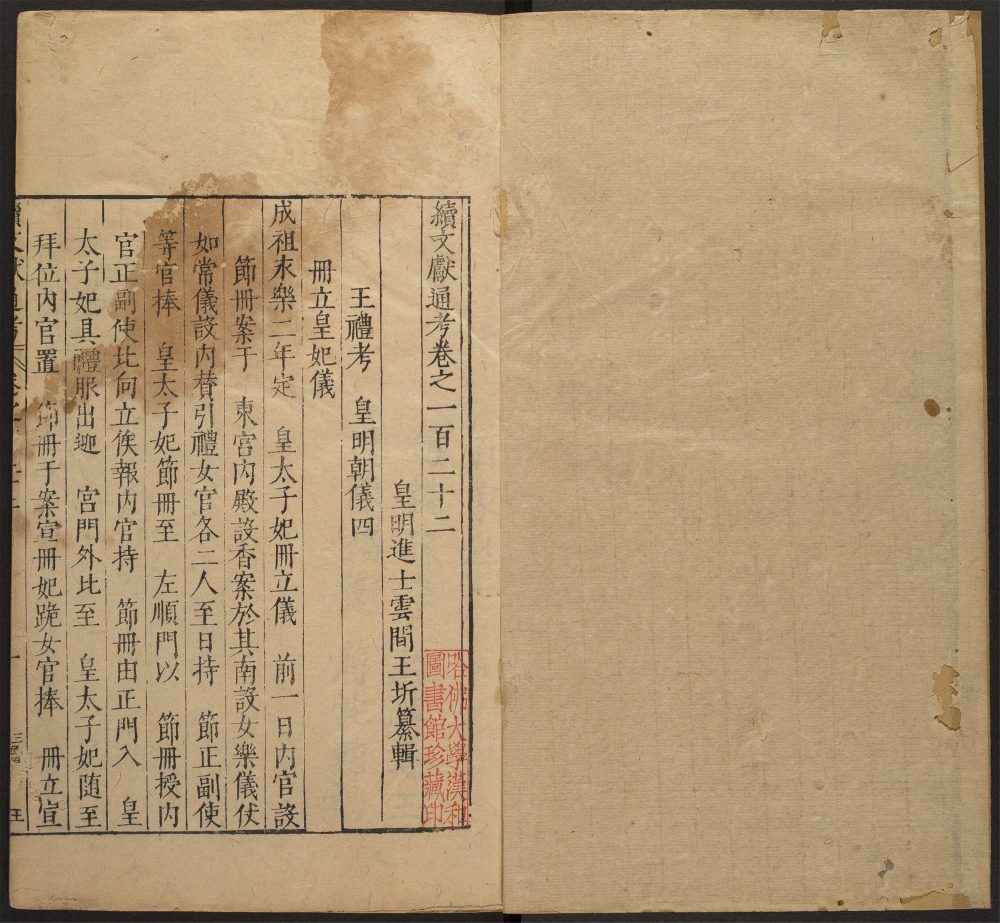 續文獻通考卷之一百二十二
皇明進士雲間王圻纂輯
王禮考 皇明朝儀四
冊立皇妃儀
成祖永樂二年定 皇太子妃冊立儀 前一日內官設
節冊案于 東宮內殿設香案於其南設女樂儀仗
如常儀設內賛引禮女官各二人至日持 節正副使
等官捧 皇太子妃節冊至 左順門以 節冊授內
官正副使北向立俟報內官持 節冊由正門入 皇
太子妃具禮服出迎 宮門外北至 皇太子妃随至
拜位內官置 節冊于案宣冊妃跪女官捧 冊立宣
續文獻通考
哈佛大學漢和
圖書館珍藏印